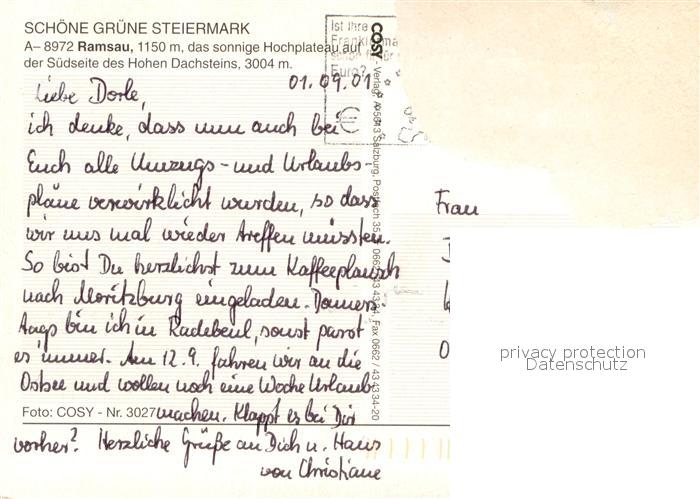 SCHÖNE GRÜNE STEIERMARK
A– 8972 Ramsau, 1150 m, das sonnige Hochplateau auf
der Südseite des Hohen Dachsteins, 3004 m.
01.09.01
Liebe Dorle,
ich denke, dass nun auch bei
Euch alle Umzugs- und Urlaubs-
pläne verwirklicht wurden, so dass
wir uns mal wieder treffen müssten.
So bist Du herzlichst zum Kaffeeplausch
nach Moritzburg eingeladen. Donners-
tags bin ich in Radebeul, sonst passt
es immer. Am 12.9. fahren wir an die
Ostsee und wollen noch eine Woche Urlaub
Foto: COSY - Nr. 3027
machen. Klappt es bei Dir
vorher? Herzliche Grüße an Dich u. Hans
von Christiane
COSY - Verlag, A-5013 Salzburg, Postfach 35, Fax 0662 / 434334-20
Ist Ihre
Euro?
€
Frau
privacy protection
Datenschutz